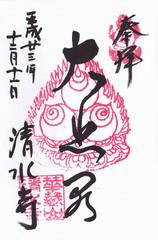 奉拝
大悲閣
清水寺
平成廿三年
十二月十一日